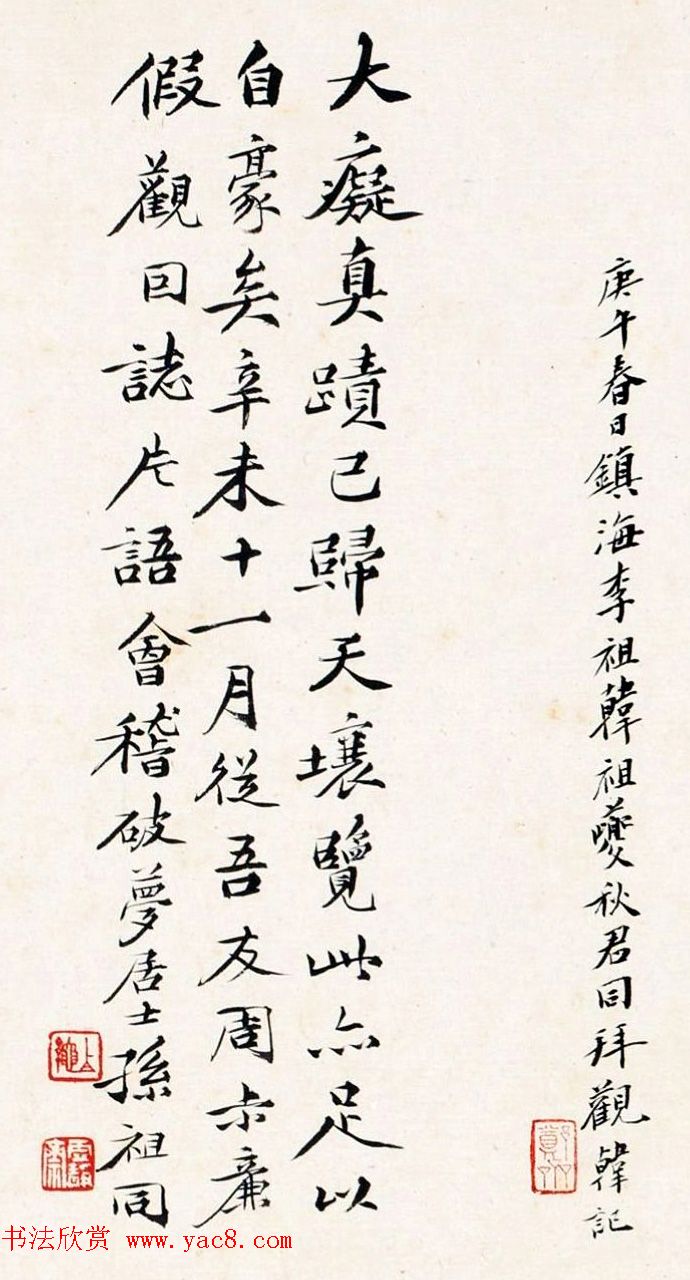 庚午春日鎮海李祖韓祖夔秋君同拜觀韓記
大癡真蹟已歸天壤覽此亦足以
自豪矣辛未十一月從吾友周湘雲
假觀因誌片語會稽破夢居士孫祖同
书法欣赏 www.yac8.com